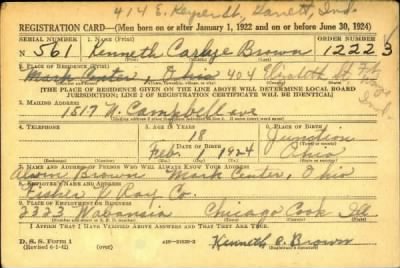 414 E. Keyser St. Garrett, Ind.
REGISTRATION CARD—(Men born on or after January 1, 1922 and on or before June 30, 1924)
SERIAL NUMBER 1. NAME (Print) ORDER NUMBER
N 561 Kenneth Brown 12223
2. PLACE OF RESIDENCE (Print)
Mark Center Ohio 404 Elizabeth St.
[THE PLACE OF RESIDENCE GIVEN ON THE LINE ABOVE WILL DETERMINE LOCAL BOARD
JURISDICTION; LINE 2 OF REGISTRATION CERTIFICATE WILL BE IDENTICAL]
3. MAILING ADDRESS
1517 N. Campbell ave
4. TELEPHONE 5. AGE IN YEARS 6. PLACE OF BIRTH
18 Junction
DATE OF BIRTH
Feb. 1 1924 Ohio
7. NAME AND ADDRESS OF PERSON WHO WILL ALWAYS KNOW YOUR ADDRESS
Brown Mark Center, Ohio
8. EMPLOYER'S NAME AND ADDRESS
Ray Co.
9. PLACE OF EMPLOYMENT OR BUSINESS
2323 Wabansia Chicago Cook Ill.
I AFFIRM THAT I HAVE VERIFIED ABOVE ANSWERS AND THAT THEY ARE TRUE.
D. S. S. Form 1
(Revised 6-1-42)
Kenneth C. Brown